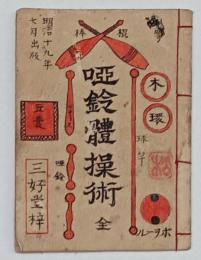 棍棒
明治十九年
七月出版
木環
球竿
豆嚢
唖鈴
啞鈴體操術 全
三好堂梓
ボール